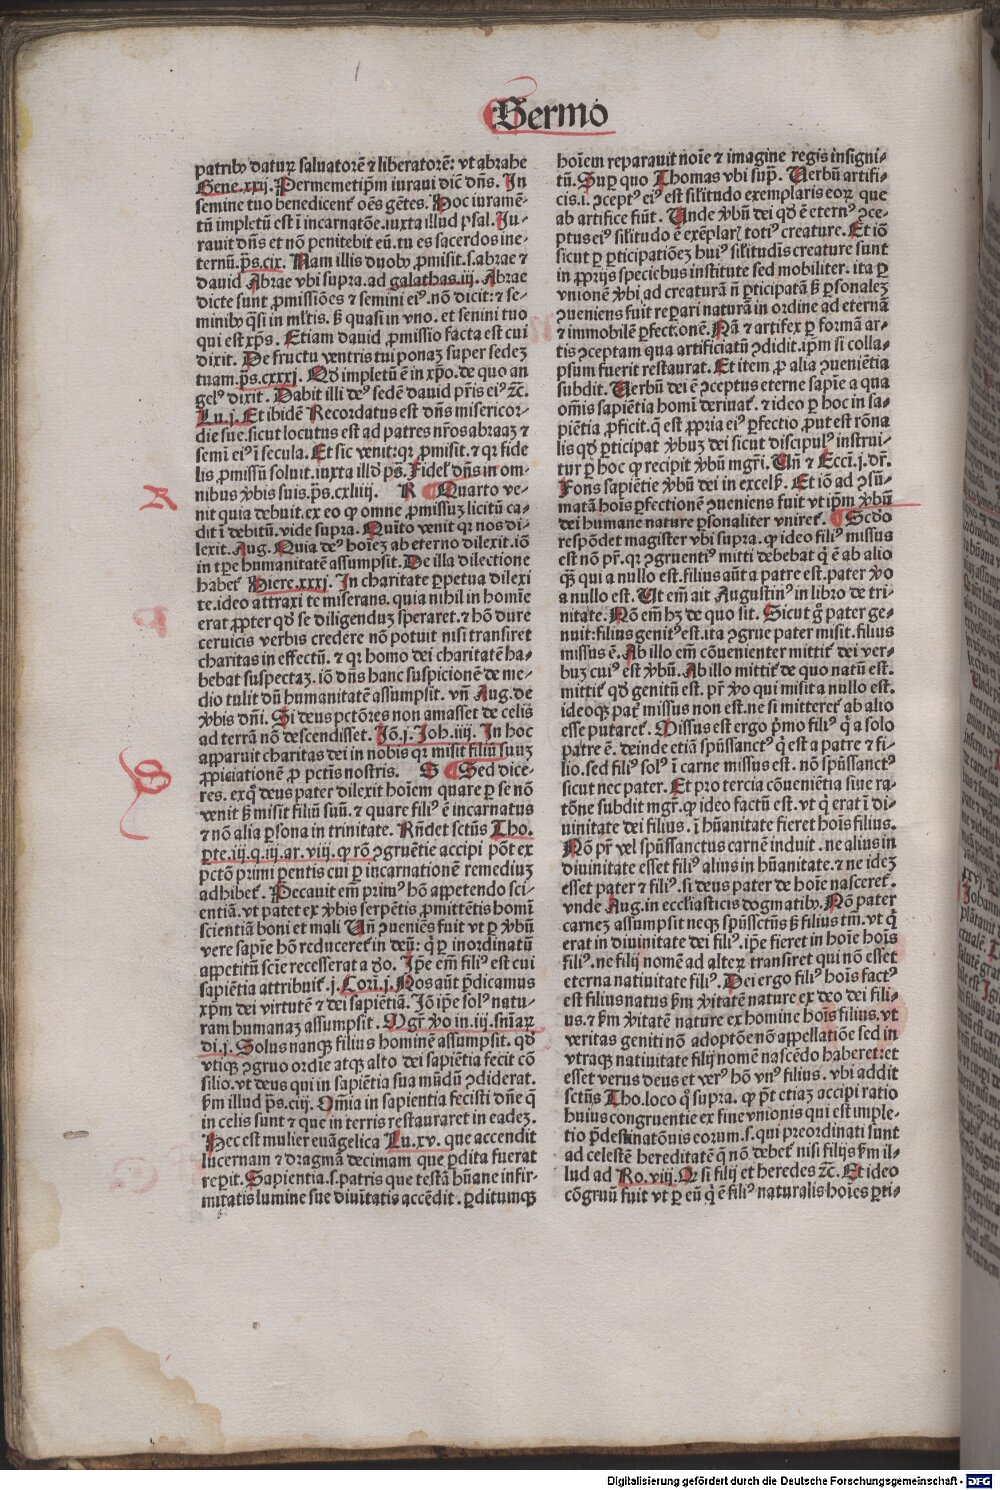 Sermo
patribꝰ daturꝫ saluatorē ⁊ liberatorē: vt abrahe
Gene.xxij. Permemetip̄m iuraui dic̄ dn̄s. In
semine tuo benedicent̄ oēs gētes. Hoc iuramē-
tū impletū est ī incarnatōe.iuxta illud psal. Ju-
rauit dn̄s et nō penitebit eū.tu es sacerdos ine-
ternū.ps.cix. Nam illis duobꝰ ꝓmisit.s.abrae ⁊
dauid Abrae vbi supra.ad galathas.iij. Abrae
dicte sunt ꝓmissiōes ⁊ semini eiꝰ. nō dicit: ⁊ se-
minibꝰ q̄si in ml̄tis. sꝫ quasi in vno. et semini tuo
qui est xp̄s. Etiam dauid ꝓmissio facta est cui
dixit. De fructu ventris tui ponaꝫ super sedeꝫ
tuam.ps.cxxxj. Qd̄ impletū ē in xp̄o.de quo an
gelꝰ dixit. Dabit illi deꝰ sedē dauid pr̄is eiꝰ ⁊c̄.
Lu.j. Et ibidē Recordatus est dn̄s misericor-
die sue.sicut locutus est ad patres nr̄os abraaꝫ ⁊
semī eiꝰ ī secula. Et sic venit:qꝛ ꝓmisit.⁊ qꝛ fide
lis ꝓmissū soluit.iuxta illd̄ ps. Fidelꝭ dn̄s in om-
nibus v̄bis suis.ps.cxliiij. R Quarto ve-
nit quia debuit.ex eo ꝙ omne ꝓmissuꝫ licitū ca-
dit ī debitū.vide supra. Quīto venit qꝛ nos di-
lexit. Aug. Quia deꝰ hoīeꝫ ab eterno dilexit.iō
in tp̄e humanitatē assumpsit. De illa dilectione
habetꝛ Hiere.xxxj. In charitate ꝑpetua dilexi
te.ideo attraxi te miserans. quia nihil in homīe
erat ꝓpter qd̄ se diligenduꝫ speraret.⁊ hō dure
ceruicis verbis credere nō potuit nisi transiret
charitas in effectū. ⁊ qꝛ homo dei charitatē ha-
bebat suspectaꝫ. iō dn̄s hanc suspicionē de me-
dio tulit dū humanitatē assumpsit. vn̄ Aug.de
v̄bis dn̄i. Si deus pctōres non amasset de celis
ad terrā nō descendisset. Jō.j. Joh.iiij. In hoc
apparuit charitas dei in nobis qꝛ misit filiū suuꝫ
ꝓpiciationē ꝓ pctīs nostris. S Sed dice-
res. exq̄ deus pater dilexit hoīem quare ꝑ se nō
venit sꝫ misit filiū suū. ⁊ quare filiꝰ ē incarnatus
⁊ nō alia ꝑsona in trinitate. Rn̄det sctūs Tho.
ꝑte.iij.q.iij.ar.viij. ꝙ rō ꝯgruētie accipi pōt ex
pctō primi pentis cui ꝑ incarnationē remediuꝫ
adhibetꝛ. Peccauit em̄ primꝰ hō appetendo sci-
entiā.vt patet ex v̄bis serpētis ꝓmittētis homī
scientiā boni et mali Un̄ ꝯueniēs fuit vt ꝑ v̄bū
vere sapiē hō reduceretꝛ in deū: q̄ ꝑ inordinatū
appetitū scīe recesserat a deo. Ip̄e em̄ filiꝰ est cui
sapiētia attribuitꝛ.j.Corī.j. Nos aūt p̄dicamus
xp̄m dei virtutē ⁊ dei sapiētiā. Jō ip̄e solꝰ natu-
ram humanaꝫ assumpsit. Mgr̄ v̄o in.iij.sn̄iaꝝ
di.j. Solus nanqꝫ filius hominē assumpsit. qd̄
vtiqꝫ ꝯgruo ordie atqꝫ alto dei sapiētia fecit cō
silio.vt deus qui in sapiētia sua mūdū ꝯdiderat.
ẜm illud ps.ciij. Om̄ia in sapientia fecisti dn̄e q̄
in celis sunt ⁊ que in terris restauraret in eadeꝫ.
Hec est mulier euāgelica Lu.xv. que accendit
lucernam ⁊ dragmā decimam que ꝑdita fuerat
reꝑit. Sapientia.s.patris que testā hūane infir-
mitatis lumine sue diuītatis accēdit. ꝑditumqꝫ
hoīem reparauit noīe ⁊ imagine regis insigni-
tū. Suꝑ quo Thomas vbi supꝛ. Uerbū artifi-
cis.i. ꝯceptꝰ eiꝰ est sil̄itudo exemplaris eoꝝ que
ab artifice fiūt. Unde v̄bū dei qd̄ ē eternꝰ ꝯce-
ptus eiꝰ sil̄itudo ē exēplarꝭ totiꝰ creature. Et iō
sicut ꝑ ꝑticipatiōeꝫ huiꝰ sil̄itudīs creature sunt
in ꝓprijs speciebus institute sed mobiliter. ita ꝑ
vnionē v̄bi ad creaturā nō ꝑticipatā sꝫ ꝑsonaleꝫ
ꝯueniens fuit reꝑari naturā in ordine ad eternā
⁊ immobilē ꝑfectionē. Nā ⁊ artifex ꝑ formā ar-
tis ꝯceptam qua artificiatū ꝯdidit.ip̄m si colla-
psum fuerit restaurat. Et item ꝓ alia ꝯueniētia
subdit. Uerbū dei ē ꝯceptus eterne sapiē a qua
om̄is sapiētia homī deriuatꝛ. ⁊ ideo ꝑ hoc in sa-
piētia ꝓficit.q̄ est ꝓpria eiꝰ ꝑfectio ꝓut est rōna
lis qd̄ ꝑticipat v̄buꝫ dei sicut discipulꝰ instrui-
tur ꝑ hoc ꝙ recipit v̄bū mgr̄i. Un̄ ⁊ Eccī.j.dr̄.
Fons sapiētie v̄bū dei in excelsꝭ. Et iō ad ꝯsū-
matā hoīs ꝑfectionē ꝯueniens fuit vt ip̄m v̄bū
dei humane nature ꝑsonaliter vniretꝛ. Secūdo
respōdet magister vbi supra. ꝙ ideo filiꝰ missus
est nō pr̄. qꝛ ꝯgruentiꝰ mitti debebat q̄ ē ab alio
qꝫ qui a nullo est.filius aūt a patre est.pater v̄o
a nullo est. Ut em̄ ait Augustinꝰ in libro de tri-
nitate. Nō em̄ hꝫ de quo sit. Sicut gͦ pater ge-
nuit:filius genitꝰ est.ita ꝯgrue pater misit. filius
missus ē. Ab illo em̄ cōuenienter mittitꝛ dei ver-
buꝫ cuiꝰ est v̄bū. Ab illo mittitꝛ de quo natū est.
mittitꝛ qd̄ genitū est. pr̄ v̄o qui misit a nullo est.
ideoqꝫ patꝛ missus non est.ne si mitteretꝛ ab alio
esse putaretꝛ. Missus est ergo p̄mo filiꝰ q̄ a solo
patre ē. deinde etiā spūssanctꝰ q̄ est a patre ⁊ fi-
lio.sed filiꝰ solꝰ ī carne missus est. nō spūssanctꝰ
sicut nec pater. Et pro tercia cōueniētia siue ra-
tōne subdit mgr̄.ꝙ ideo factū est.vt q̄ erat ī di-
uinitate dei filius. ī hūanitate fieret hoīs filius.
Nō pr̄ vel spūssanctus carnē induit. ne alius in
diuinitate esset filiꝰ alius in hūanitate.⁊ ne ideꝫ
esset pater ⁊ filiꝰ. si deus pater de hoīe nasceretꝛ.
vnde Aug.in ecclīasticis dogmatibꝰ. Nō pater
carneꝫ assumpsit neqꝫ spūssctūs sꝫ filius tm̄. vt q̄
erat in diuinitate dei filiꝰ. ip̄e fieret in hoīe hoīs
filiꝰ. ne filij nomē ad alterꝝ transiret qui nō esset
eterna natiuitate filiꝰ. Dei ergo filiꝰ hoīs factꝰ
est filius natus ẜm v̄itatē nature ex deo dei fili-
us.⁊ ẜm v̄itatē nature ex homine hoīs filius.vt
veritas geniti nō adoptōe nō appellatiōe sed in
vtraqꝫ natiuitate filij nomē nascēdo haberet:et
esset verus deus et verꝰ hō vnꝰ filius. vbi addit
sctūs Tho.loco q̄ supra. ꝙ pt̄ etiaꝫ accipi ratio
huius congruentie ex fine vnionis qui est imple-
tio p̄destinatōnis eorum.s.qui preordinati sunt
ad celestē hereditatē q̄ nō debetꝛ nisi filijs ẜm il-
lud ad Ro.viij. Q si filij et heredes ⁊c̄. Et ideo
cōgruū fuit vt ꝑ eū q̄ ē filiꝰ naturalis hoīes ꝑti-
A
S
Digitalisierung gefördert durch die Deutsche Forschungsgemeinschaft - DFG